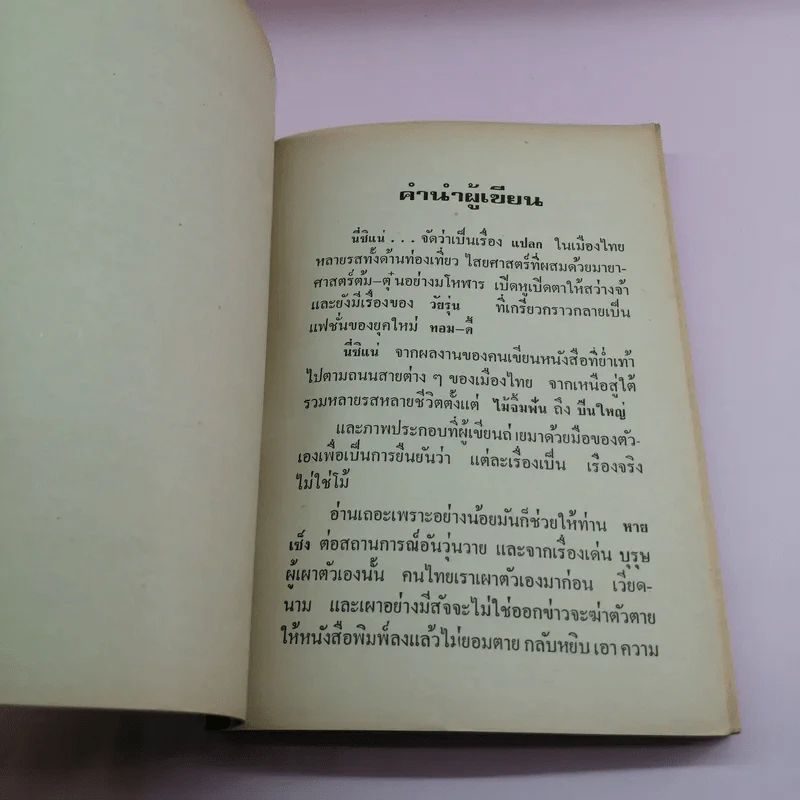 คำนำผู้เขียน
นี่ซิแน่ . . . จัดว่าเป็นเรื่อง แปลก ในเมืองไทย
หลายรสทั้งด้านท่องเที่ยว ไสยศาสตร์ที่ผสมด้วยมายา-
ศาสตร์ต้ม-ตุ๋นอย่างมโหฬาร เปิดหูเปิดตาให้สว่างจ้า
และยังมีเรื่องของ วัยรุ่น ที่เกรียวกราวกลายเป็น
แฟชั่นของยุคใหม่ ทอม-ดี้
นี่ซิแน่ จากผลงานของคนเขียนหนังสือที่ย่ำเท้า
ไปตามถนนสายต่าง ๆ ของเมืองไทย จากเหนือสู่ใต้
รวมหลายรสหลายชีวิตตั้งแต่ ไม้จิ้มฟัน ถึง ปืนใหญ่
และภาพประกอบที่ผู้เขียนถ่ายมาด้วยมือของตัว-
เองเพื่อเป็นการยืนยันว่า แต่ละเรื่องเป็น เรื่องจริง
ไม่ใช่โม้
อ่านเถอะเพราะอย่างน้อยมันก็ช่วยให้ท่าน หาย
เซ็ง ต่อสถานการณ์อันวุ่นวาย และจากเรื่องเด่น บุรุษ
ผู้เผาตัวเองนั้น คนไทยเราเผาตัวเองมาก่อน เวียด-
นาม และเผาอย่างมีสัจจะไม่ใช่ออกข่าวจะฆ่าตัวตาย
ให้หนังสือพิมพ์ลงแล้วไม่ยอมตาย กลับหยิบ เอา ความ